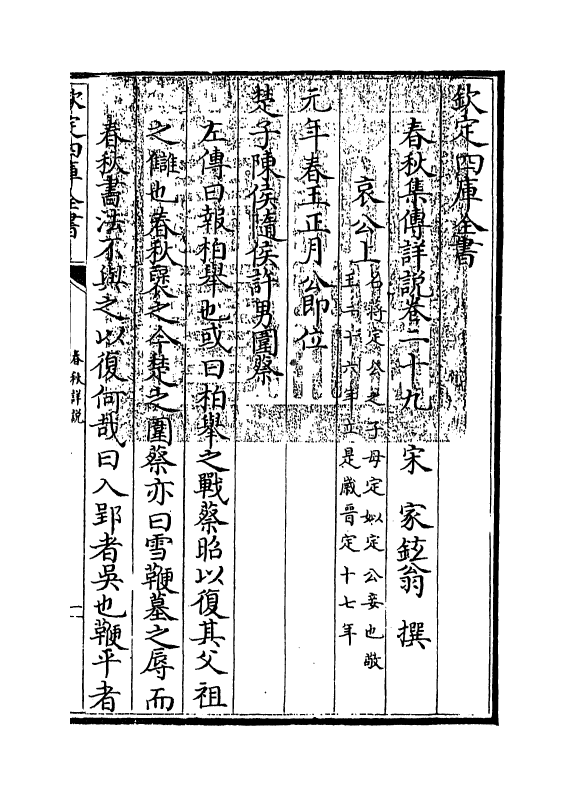 欽定四庫全書
春秋集傳詳説卷二十九　宋　家鉉翁　撰
哀公上
名將定公之子母定姒定公妾也敬
王二十六年立是歳晉定十七年
元年春王正月公即位
楚子陳侯隨侯許男圍蔡
左傳曰報柏舉也或曰柏舉之戰蔡昭以復其父祖
之讎也春秋褒之今楚之圍蔡亦曰雪鞭墓之辱而
春秋書法不與之以復何哉曰入郢者吳也鞭平者
欽定四庫全書
春秋詳説
一